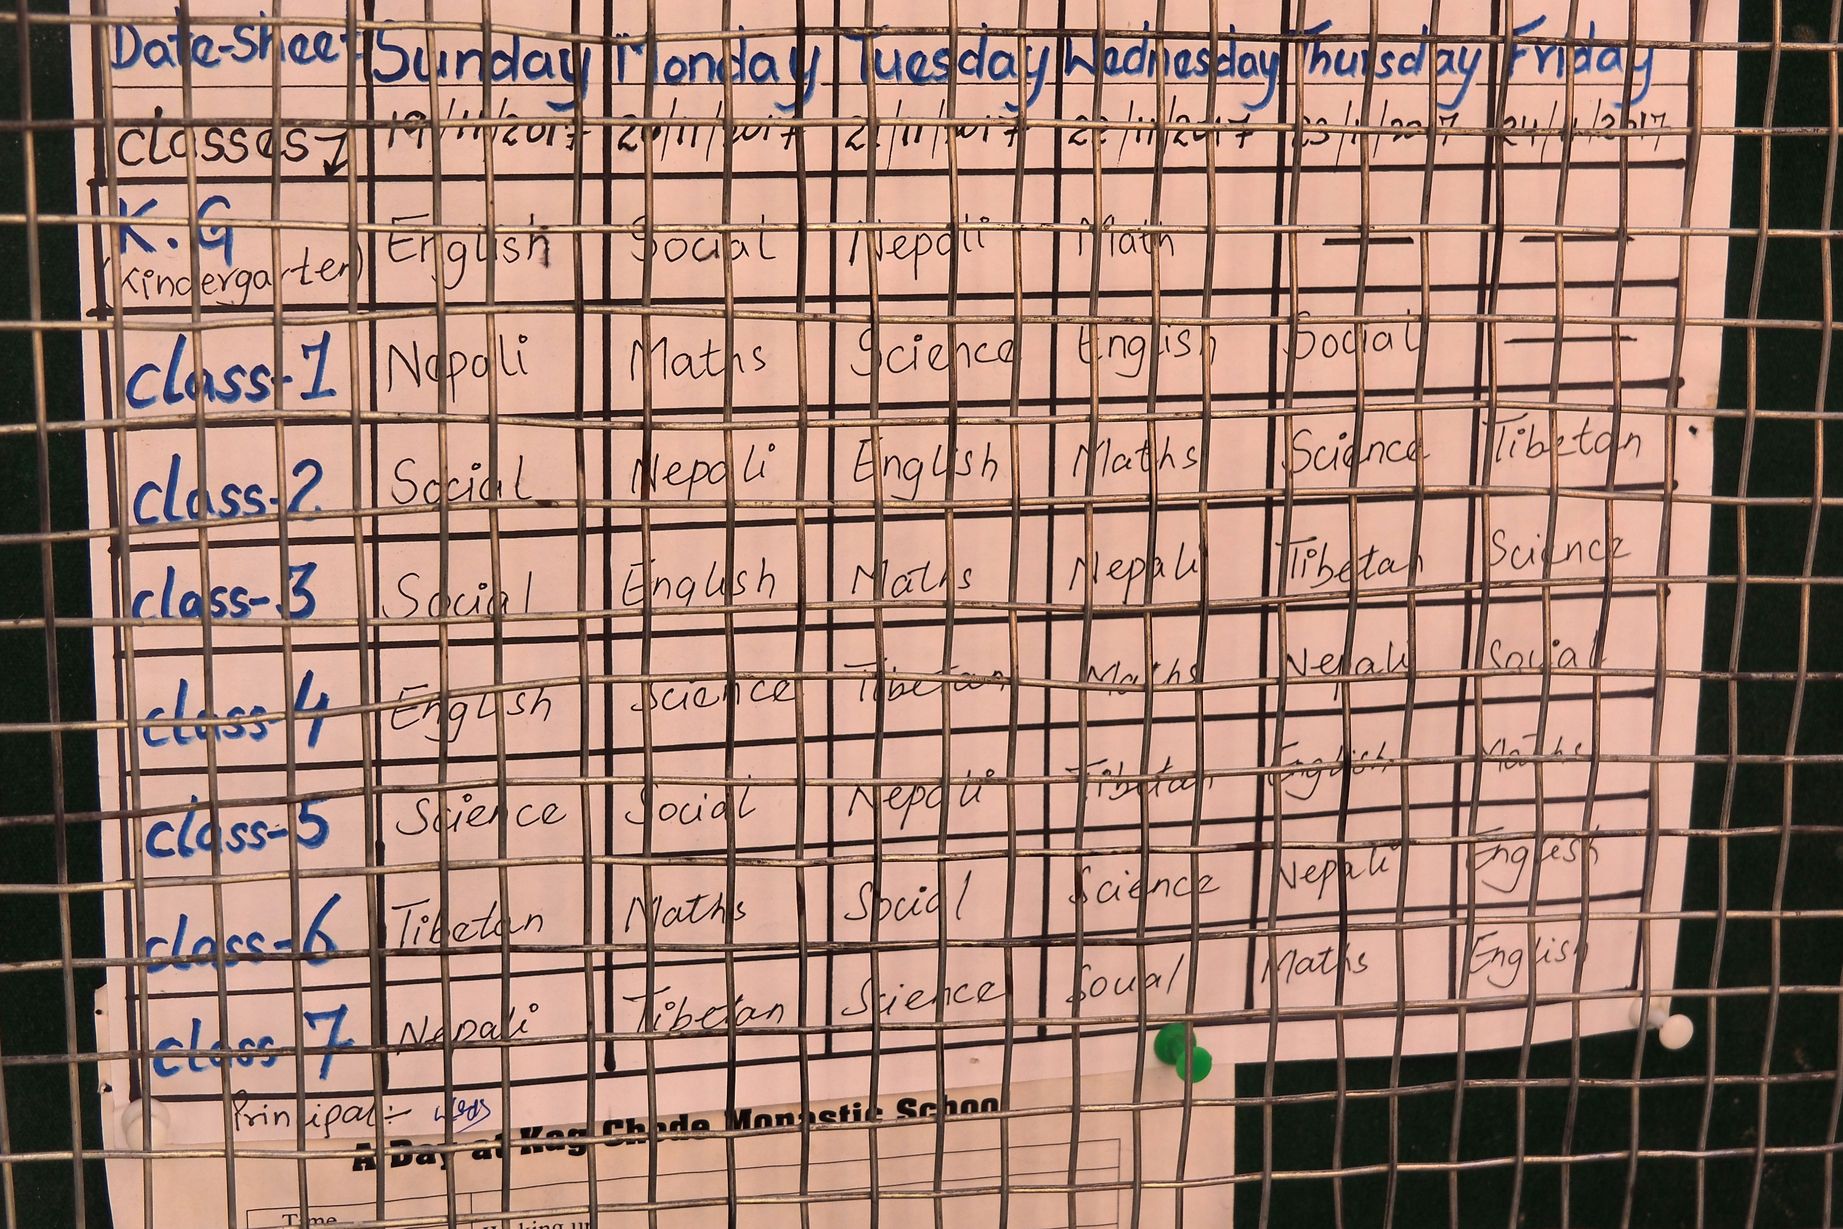 Date-Sheet Sunday Monday Tuesday Wednesday Thursday Friday
classes 19/11/2017 20/11/2017 21/11/2017 22/11/2017 23/11/2017 24/11/2017
K.G English Social Nepali Math — —
(Kindergarten)
class-1 Nepali Maths Science English Social —
class-2 Social Nepali English Maths Science Tibetan
class-3 Social English Maths Nepali Tibetan Science
class-4 English Science Tibetan Maths Nepali Social
class-5 Science Social Nepali Tibetan English Maths
class-6 Tibetan Maths Social Science Nepali English
class-7 Nepali Tibetan Science Social Maths English
Principal:-
A Day at Kag Chode Monastic School
Time